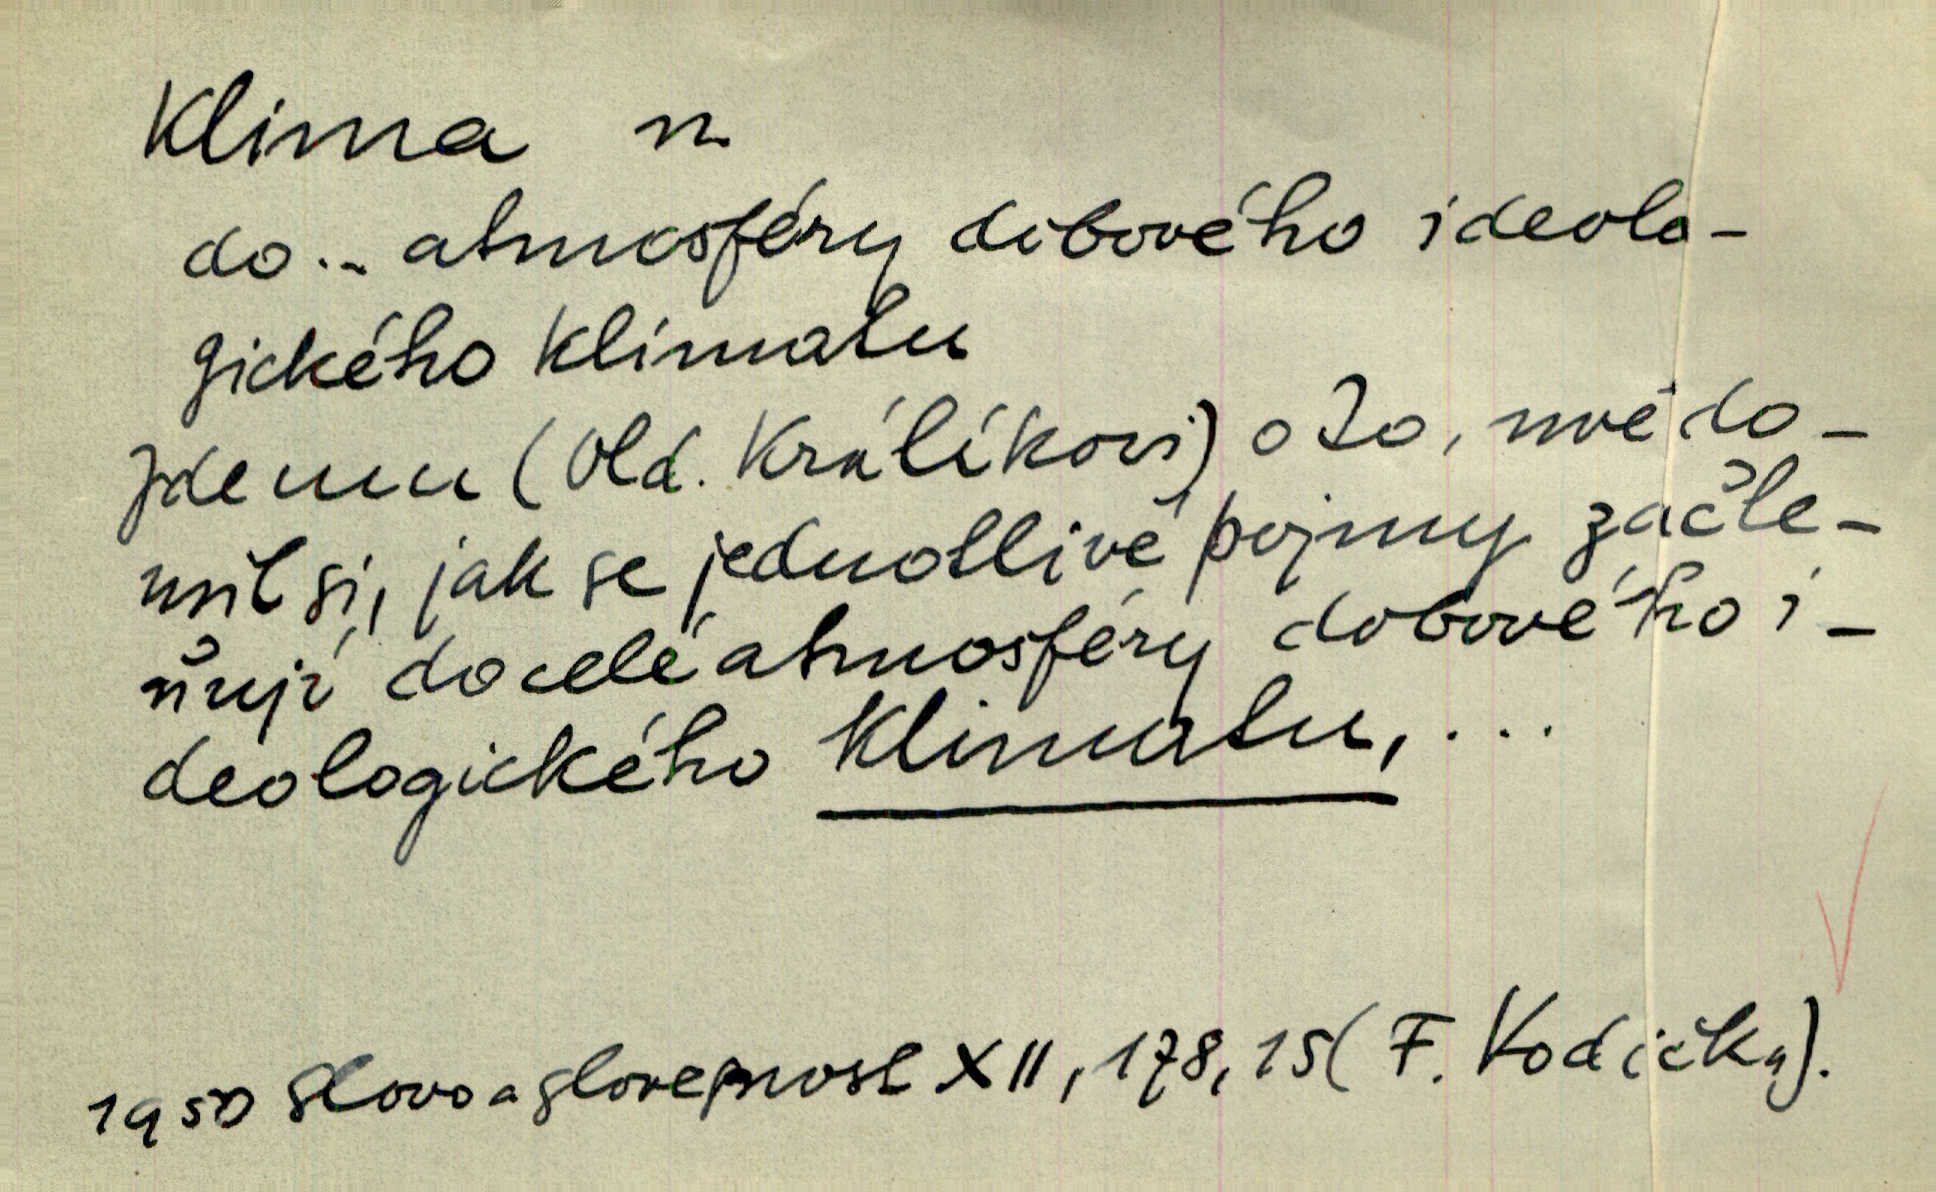 Klima n.
do... atmosféry dobového ideolo-
gického klimatu
Jde mu (Old. Králíkovi) o to, uvědo-
mit si, jak se jednotlivé pojmy začle-
ňují do celé atmosféry dobového i-
deologického klimatu, ...
1950 Slovo a slovesnost XII, 178, 15 (F. Vodička).